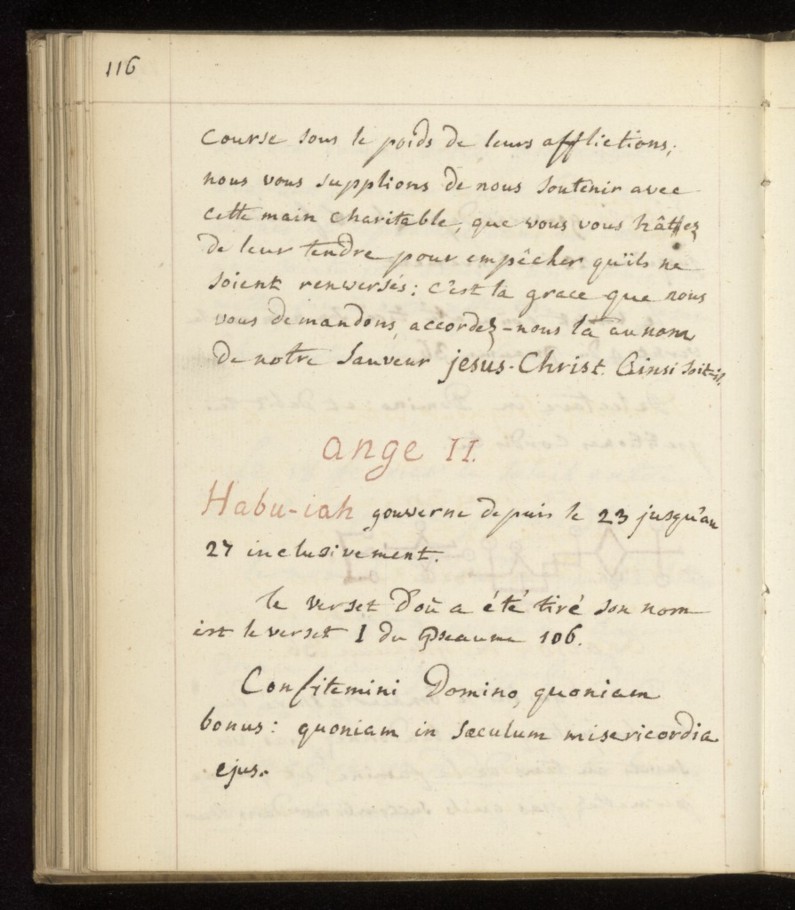 116
Course sous le poids de leurs afflictions;
nous vous supplions de nous soutenir avec
cette main charitable, que vous vous hâttez
de leur tendre pour empêcher qu'ils ne
soient renversés: c'est la grace que nous
vous demandons, accordez-nous la au nom
de notre Sauveur jesus-Christ. Ainsi soit-il.
ange II.
Habu-iah gouverne depuis le 23 jusqu'au
27 inclusivement.
le verset d'où a été tiré son nom
est le verset I du Pseaume 106.
Confitemini Domino, quoniam
bonus: quoniam in sæculum misericordia
ejus.